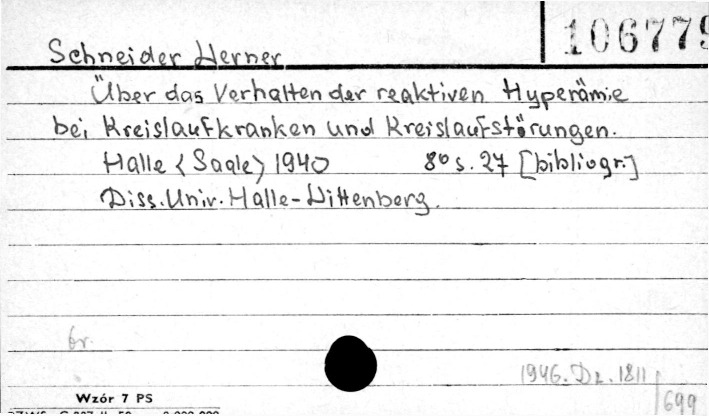 106779
Schneider Werner
Über das Verhalten der reaktiven Hyperämie
bei Kreislaufkranken und Kreislaufstörungen.
Halle <Saale> 1940 8° s. 27 [bibliogr.]
Diss. Univ. Halle-Wittenberg.
br.
1946. Dz. 1811
699
Wzór 7 PS